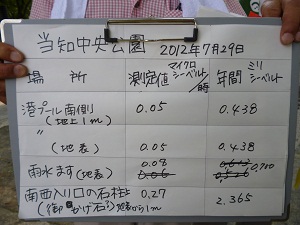 当知中央公園 2012年7月29日
場所 測定値 マイクロシーベルト/時 年間 ミリシーベルト
港プール南側 (地上1m) 0.05 0.438
〃 (地表) 0.05 0.438
雨水ます(地表) 0.08 0.700
南西入り口の石柱 0.27 2.365
(御かげ石)から1m